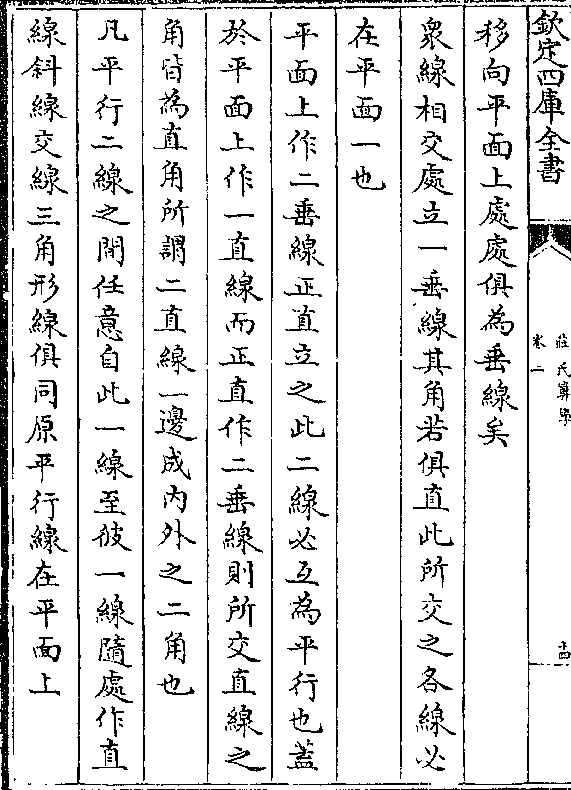 欽定四庫全書
莊氏算學
卷二
十四
移向平面上處處俱為垂線矣
衆線相交處立一垂線其角若俱直此所交之各線必
在平面一也
平面上作二垂線正直立之此二線必互為平行也蓋
於平面上作一直線而正直作二垂線則所交直線之
角皆為直角所謂二直線一邊成内外之二角也
凡平行二線之間任意自此一線至彼一線隨處作直
線斜線交線三角形線俱同原平行線在平面上